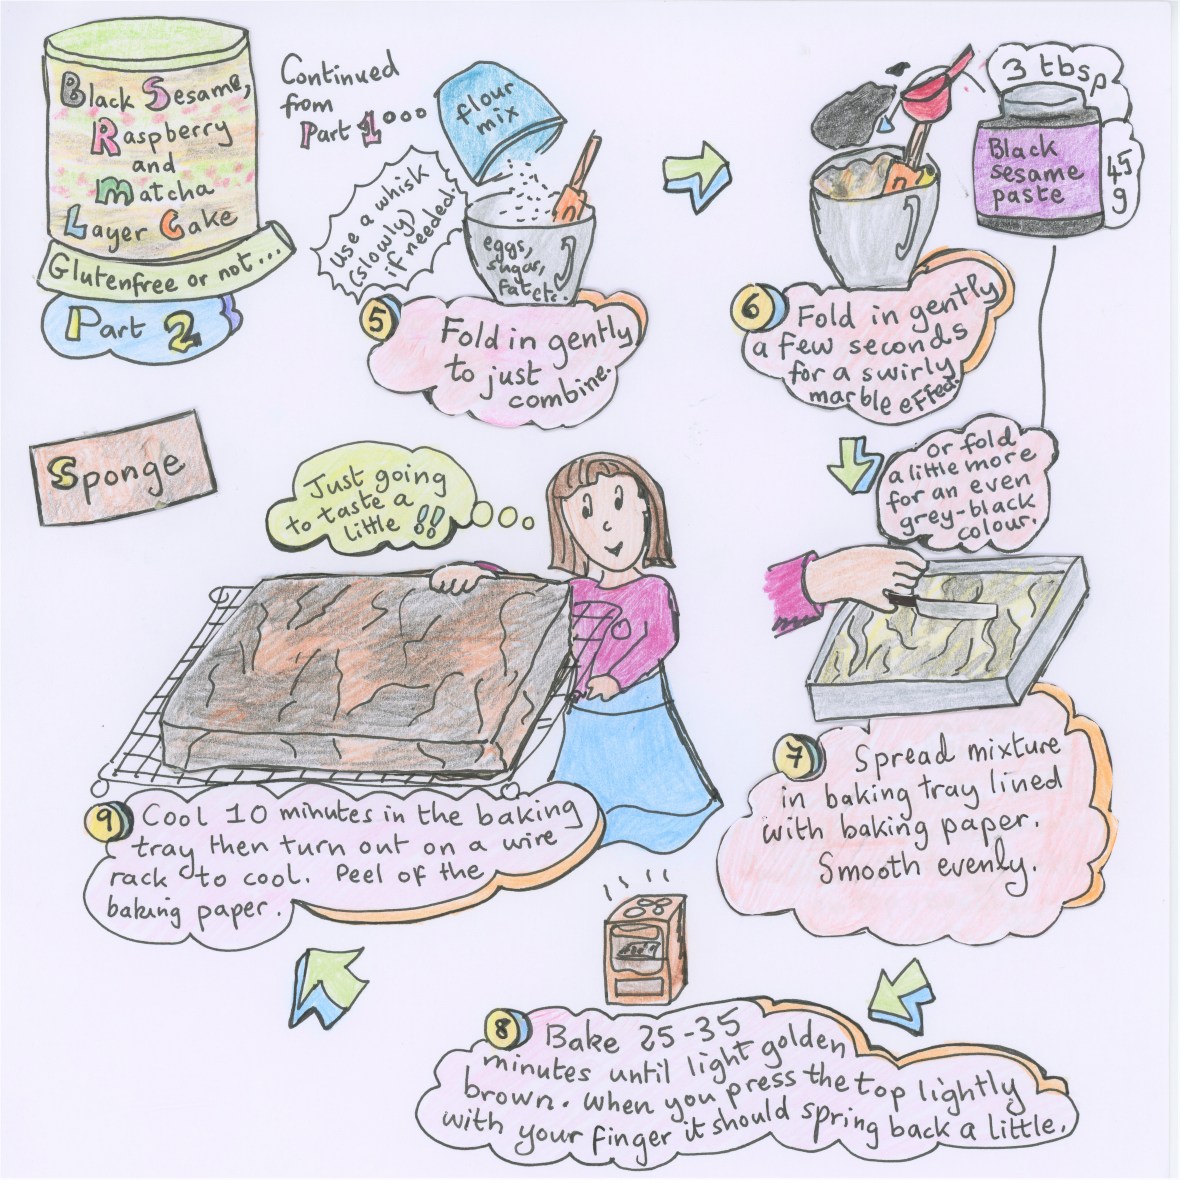 Black Sesame,
Raspberry
and
Matcha
Layer Cake
Glutenfree or not...
Part 2
Continued
from
Part 1ooo
flour
mix
Use a whisk
(slowly)
if needed.
eggs,
sugar,
fat etc.
5 Fold in gently
to just
combine.
3 tbsp
Black
sesame
paste
45
g
6 Fold in gently
a few seconds
for a swirly
marble effect.
or fold
a little more
for an even
grey-black
colour.
Sponge
Just going
to taste a
little !!
7 Spread mixture
in baking tray lined
with baking paper.
Smooth evenly.
8 Bake 25-35
minutes until light golden
brown. When you press the top lightly
with your finger it should spring back a little.
9 Cool 10 minutes in the baking
tray then turn out on a wire
rack to cool. Peel of the
baking paper.